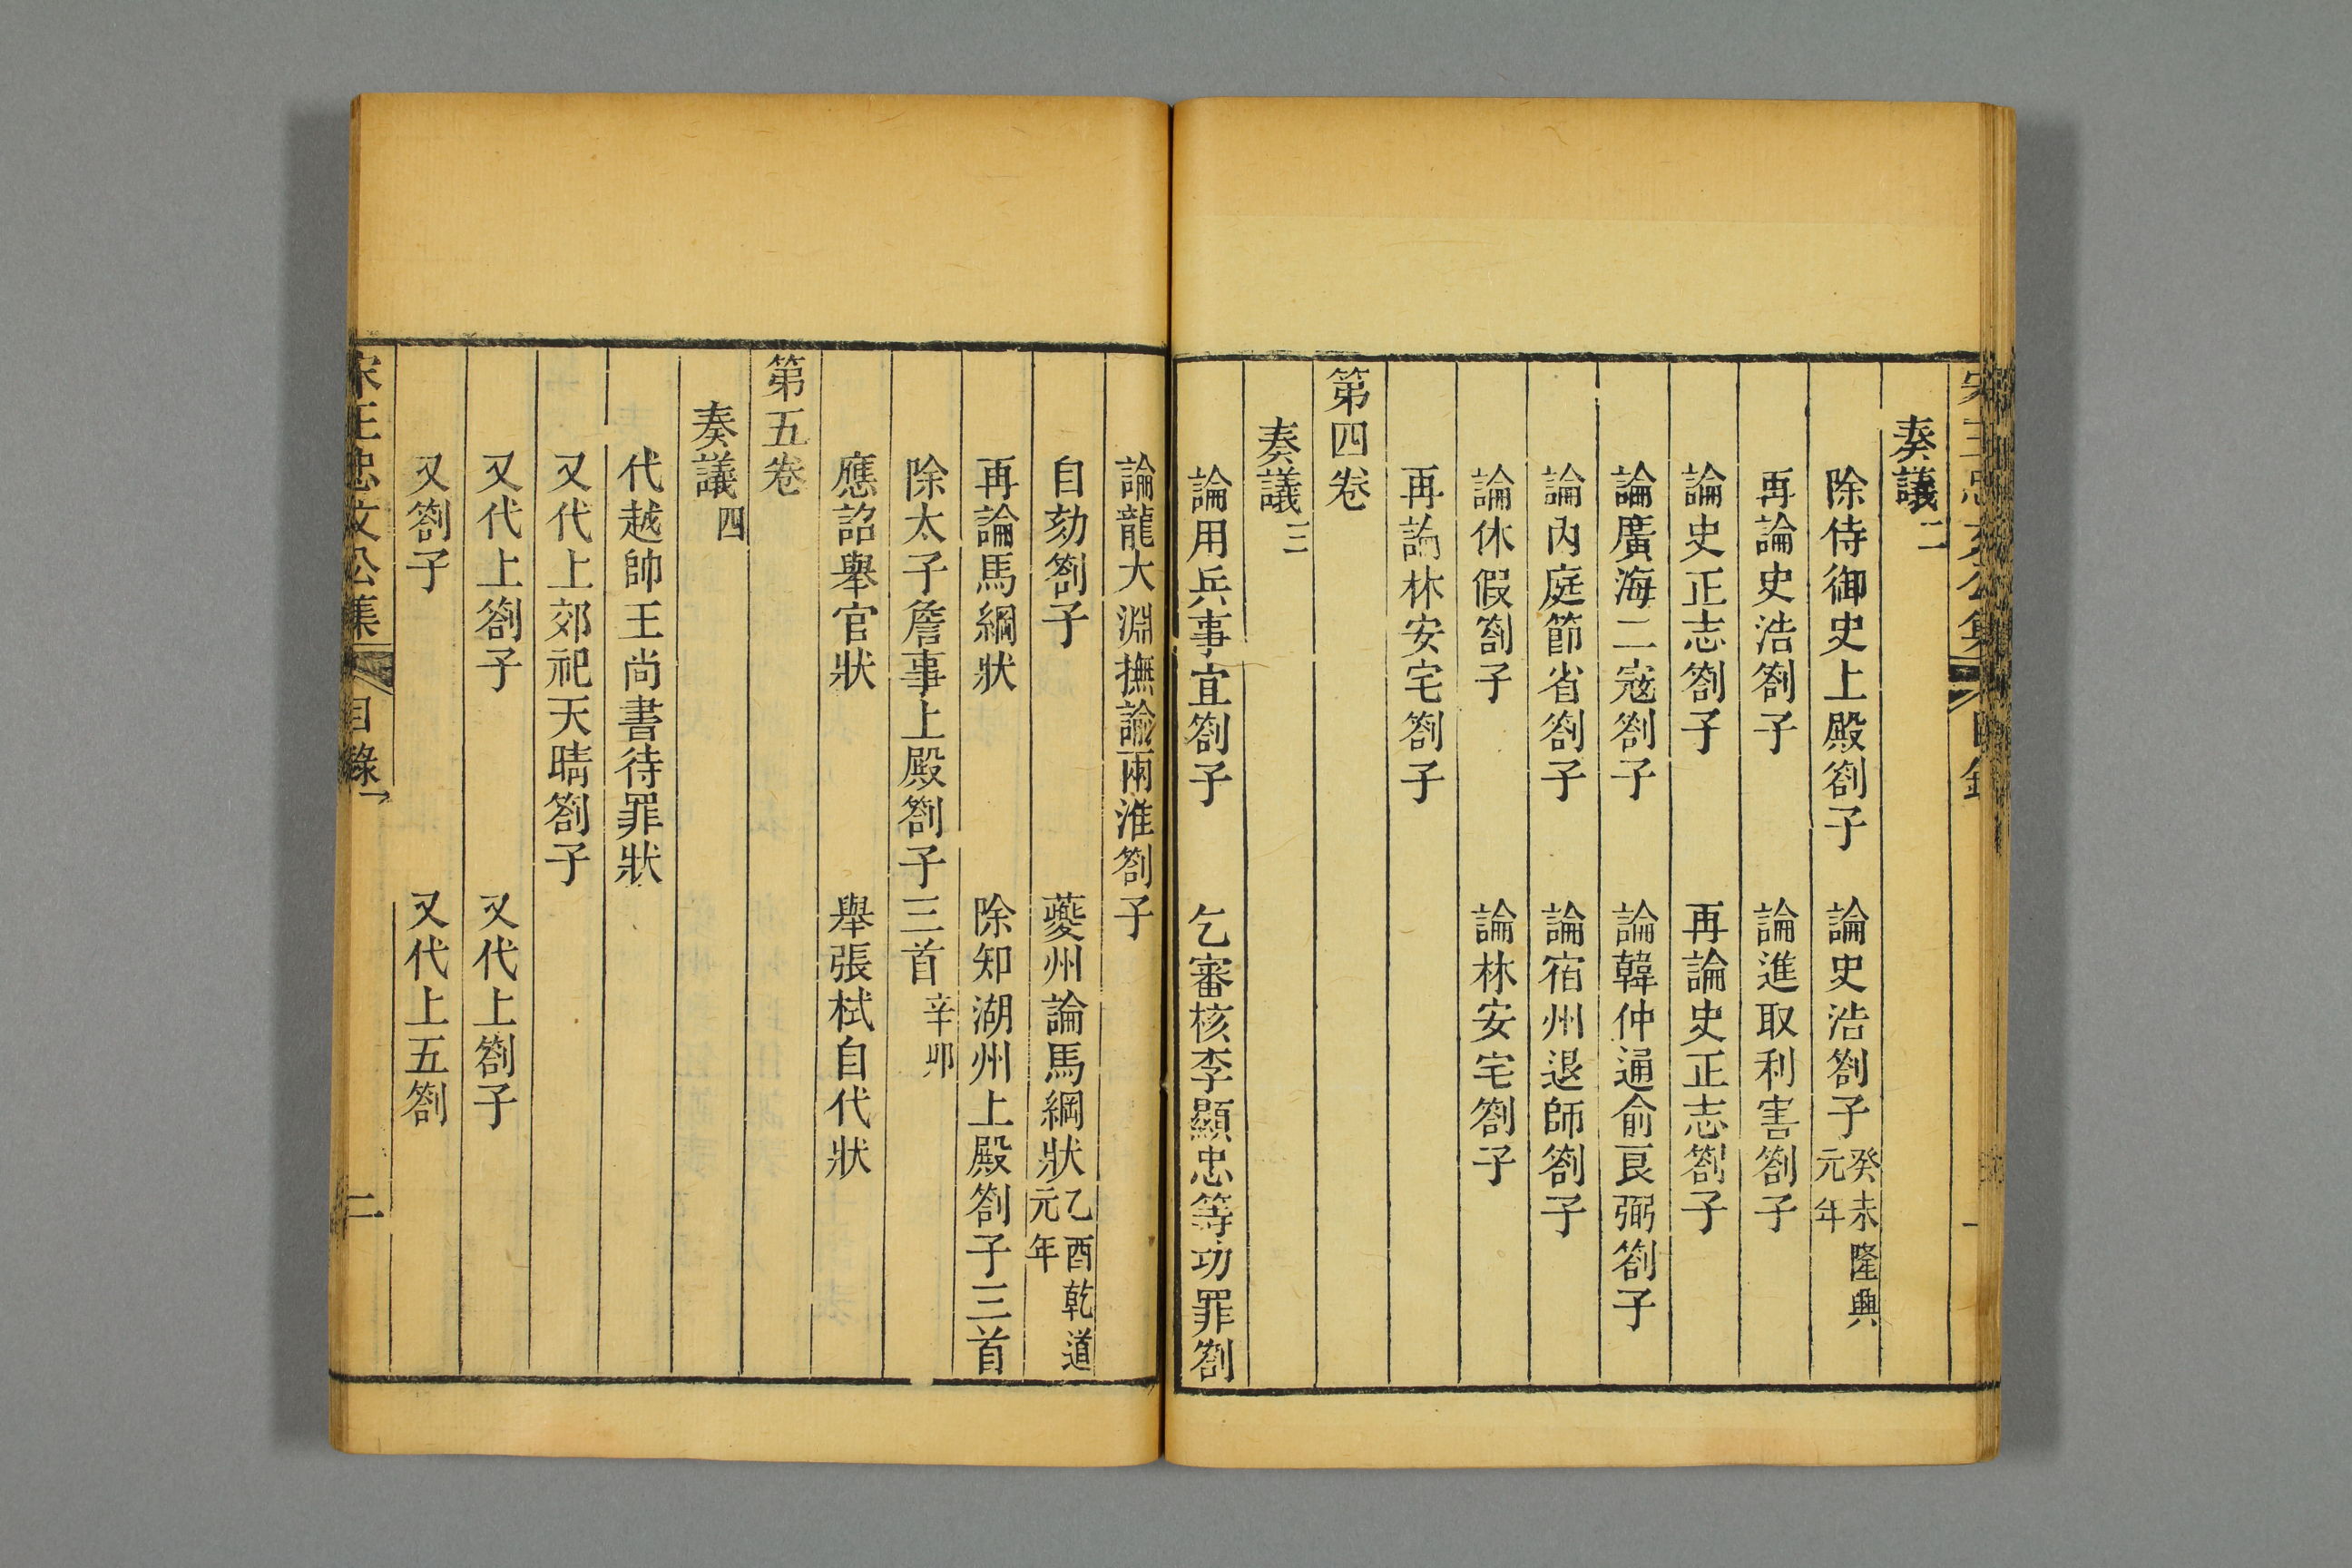 宋王忠文公集 目錄 一
奏議二
除侍御史上殿劄子 論史浩劄子 癸未隆興元年
再論史浩劄子 論進取利害劄子
論史正志劄子 再論史正志劄子
論廣海二寇劄子 論韓仲通俞良弼劄子
論內庭節省劄子 論宿州退師劄子
論休假劄子 論林安宅劄子
再論林安宅劄子
第四卷
奏議三
論用兵事宜劄子 乞審核李顯忠等功罪劄
論龍大淵撫諭兩淮劄子
自劾劄子 夔州論馬綱狀 乙酉乾道元年
再論馬綱狀 除知湖州上殿劄子三首
除太子詹事上殿劄子三首 辛卯
應詔舉官狀 舉張栻自代狀
第五卷
奏議四
代越帥王尚書待罪狀
又代上郊祀天晴劄子
又代上劄子 又代上劄子
又劄子 又代上五劄
宋王忠文公集 目錄 二